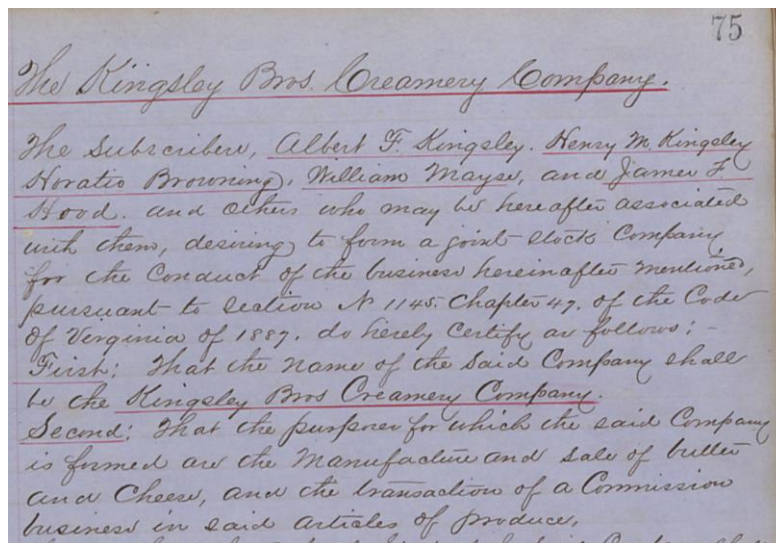 75
The Kingsley Bros. Creamery Company.
The Subscribers, Albert F. Kingsley. Henry M. Kingsley
Horatio Browning, William Mayse, and James F.
Hood. and others who may be hereafter associated
with them, desiring to form a joint stock Company
for the Conduct of the business hereinafter mentioned,
pursuant to section № 1145. Chapter 47. of the Code
of Virginia of 1887. do hereby Certify as follows: -
First: That the name of the said Company shall
be the Kingsley Bros Creamery Company.
Second: That the purposes for which the said Company
is formed are the Manufacture and Sale of butter
and Cheese, and the transaction of a Commission
business in said articles of produce.